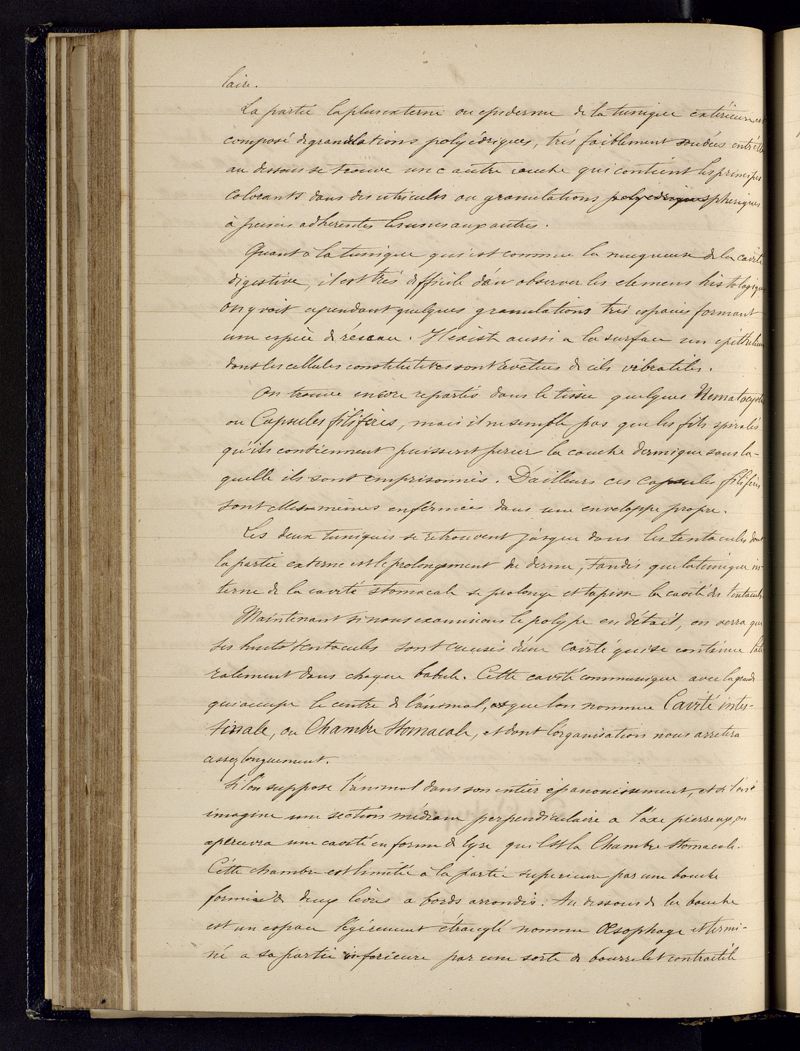 laire.
La partie la plus externe ou epiderme de la tunique extérieure est
composé de granulations polyédriques, très faiblement soudées entr'elles
au dessous se trouve une autre couche qui contient les principes
colorants dans des utricules ou granulations polyedriques spheriques
à peines adhérentes les unes aux autres.
Quant à la tunique qui est comme la muqueuse de la cavité
digestive, il est très difficile d'en observer les elemens histologiques
on y voit cependant quelques granulations très espacées formant
une espèce de réseau. Il existe aussi a la surface un épithelium
dont les cellules constitutives sont revêtues de cils vibratiles.
On trouve encore repartis dans le tissu quelques Nematocystes
ou Capsules filifères, mais il me semble pas que les fils spiralés
qu'ils contiennent puissent percer la couche dermique sous la-
quelle ils sont emprisonnés. D'ailleurs ces capsules filifères
sont elles mêmes enfermées dans une enveloppe propre.
Les deux tuniques se retrouvent jusque dans les tentacules dont
la partie externe est le prolongement du derme, tandis que la tunique in-
terne de la cavité stomacale se prolonge et tapisse la cavité des tentacules
Maintenant si nous examinons le polype en détail, on verra que
ses huit tentacules sont creusés d'une cavité qui se continue laté
ralement dans chaque barbule. Cette cavité communique avec la grande
qui occupe le centre de l'animal, et que l'on nomme Cavité intes-
tinale, ou Chambre Stomacale, et dont l'organisation nous arretera
assez longuement.
Si l'on suppose l'animal dans son entier épanouissement, et si l'on
imagine une section médiane perpendiculaire a l'axe pierreux, on
apercevra une cavité en forme de lyre qui est la Chambre Stomacale.
Cette chambre est limitée à la partie superieure par une bouche
formée de deux lèvres a bords arrondis. Au dessous de la bouche
est un espace légèrement étranglé nommé Œsophage et termi-
né a sa partie inferieure par une sorte de bourrelet contractile